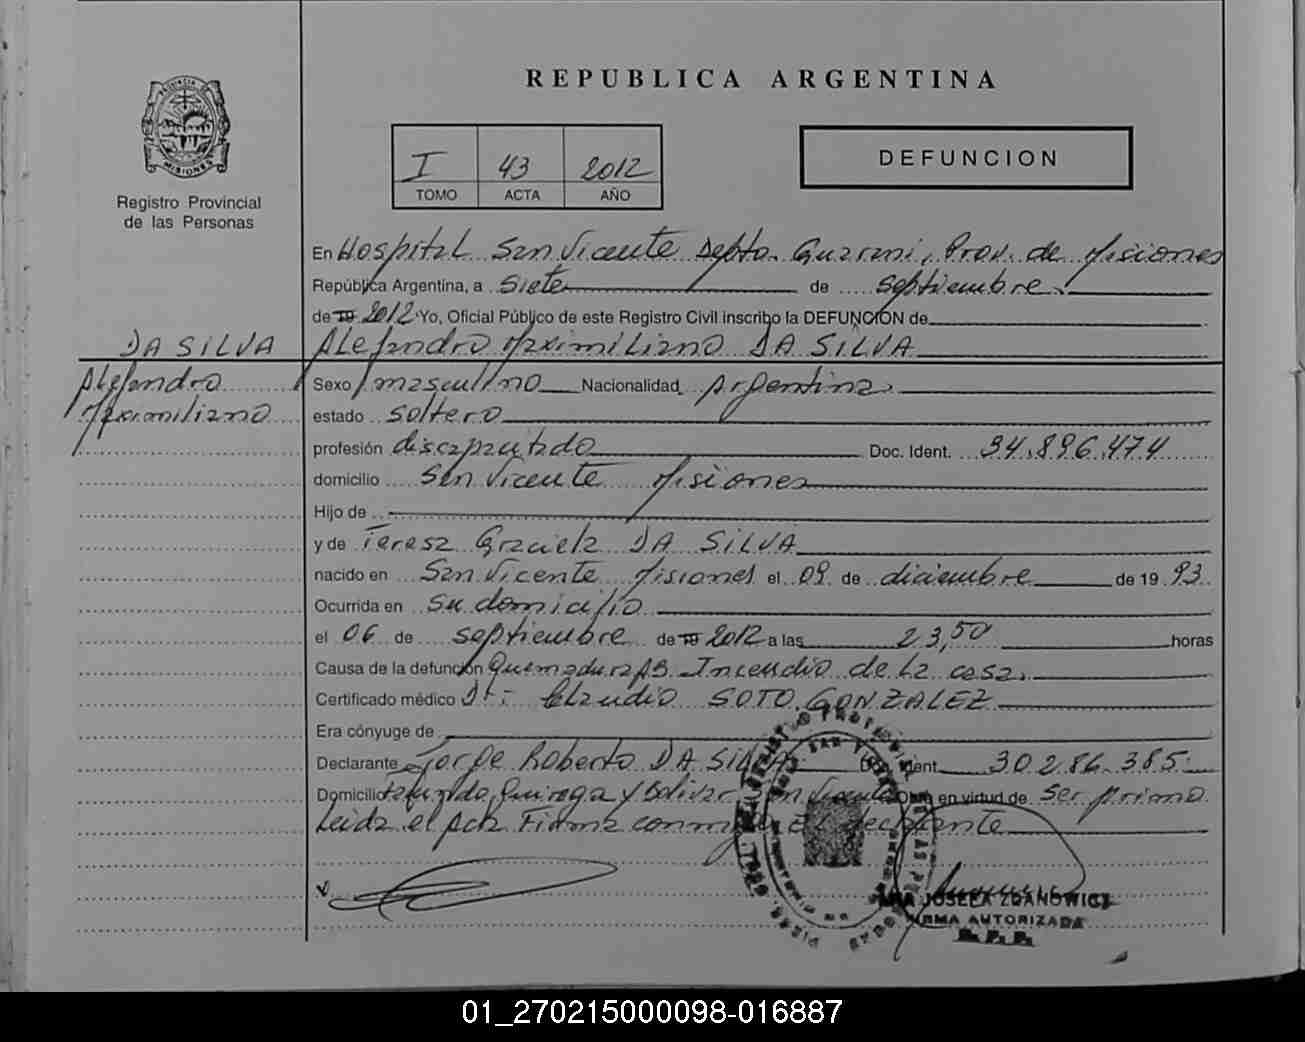 REPUBLICA ARGENTINA
DEFUNCION
I 43 2012
TOMO ACTA AÑO
MISIONES
Registro Provincial
de las Personas
En Hospital San Vicente Depto. Guarani, Prov. de Misiones
República Argentina, a Siete de septiembre
de 19 2012 Yo, Oficial Público de este Registro Civil inscribo la DEFUNCIÓN de
DA SILVA Alejandro Maximiliano DA SILVA
Alejandro Sexo masculino Nacionalidad Argentina
Maximiliano estado soltero
profesión discapacitado Doc. Ident. 34.896.474
domicilio San Vicente Misiones
Hijo de
y de Teresa Graciela DA SILVA
nacido en San Vicente Misiones el 09 de diciembre de 19 93
Ocurrida en su domicilio
el 06 de septiembre de 19 2012 a las 23,50 horas
Causa de la defunción Incendio de la casa.
Certificado médico Dr: Claudio SOTO GONZALEZ
Era cónyuge de
Declarante Jorge Roberto DA SILVA Ident. 30286.385
Domicilio Quiroga y Bolivar San Vicente Obra en virtud de ser primo
Leida el Acta Firma conmigo El
JOSEFA ZDANOWICZ
FIRMA AUTORIZADA
R. P. P.
01_270215000098-016887